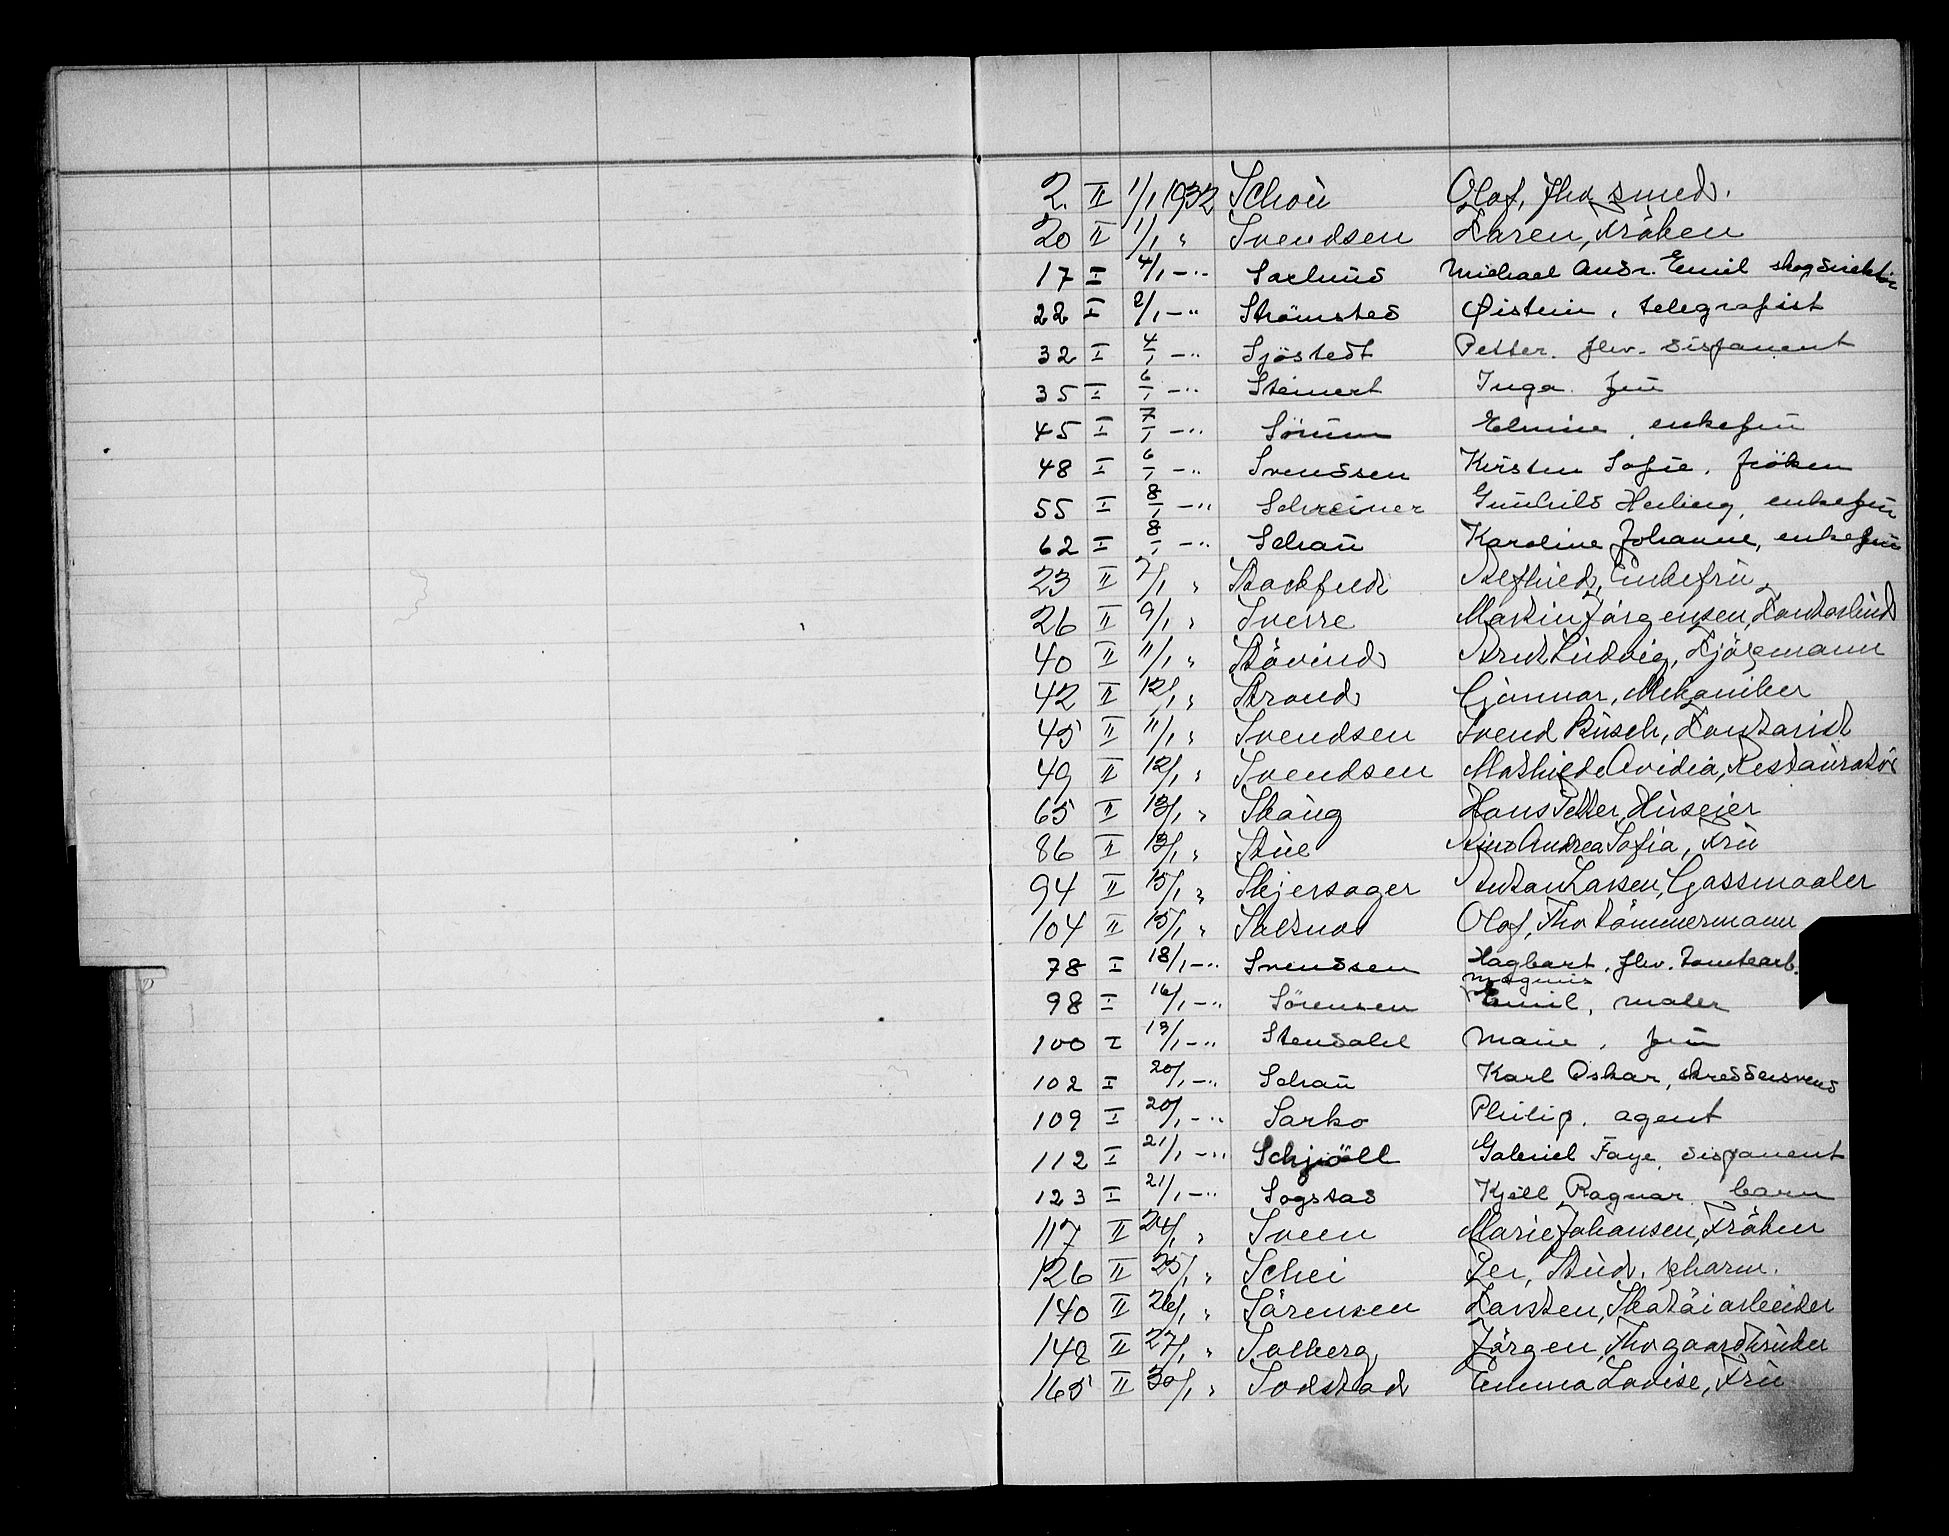 2. II 1/1 1932 Schou Olaf, fhv smed.
20 II 1/1 " Svendsen Karen, Fröken
17 I 4/1 -"- Saxlund Michael Andr. Emil skogdirektör
22 I 2/1 -"- Strömsted Øistein, telegrafist
32 I 4/1 -"- Sjöstedt Petter. fhv. disponent
35 I 6/1 -"- Steinert Inga. fru
45 I 7/1 -"- Sörum Elmine, enkefru
48 I 6/1 -"- Svendsen Kirsten Sofie. fröken
55 I 8/1 -"- Schreiner Gunhild Herberg, enkefru
62 I 8/1 -"- Schau Karoline Johanne, enkefru
23 II 7/1 " Enkefru
26 II 9/1 " Sverre Martin Jörgensen, Kontorbud
40 II 11/1 " Stövind Arnt Ludvig, Kjöremann
42 II 12/1 " Strand Gunnar, Mekaniker
45 II 11/1 " Svendsen Svend Busch, Kontorist
49 II 12/1 " Svendsen Mathilde Ovidia, Restauratör
65 II 13/1 " Skaug Hans Petter, Huseier
86 II 13/1 " Stue Andrea Sofia, Fru
94 II 15/1 " Skjersager Anton Larsen, Gassmaaler
104 II 15/1 " Saltnes Olaf, Fhv Tömmermann
78 I 18/1 -"- Svendsen Hagbart, fhv. tomtearb.
98 I 16/1 -"- Sörensen Magnus Emil, maler
100 I 19/1 -"- Stendahl Marie, fru
102 I 20/1 -"- Schau Karl Oskar, skreddersvend
109 I 20/1 -"- Sarko Philip, agent
112 I 21/1 -"- Schjöll Gabriel Faye, disponent
123 I 21/1 -"- Sogstad Kjell Ragnar barn
117 II 24/1 " Sveen Marie Johansen, Fröken
126 II 25/1 " Schei Per, Stud. pharm.
140 II 26/1 " Sörensen Karsten, Skotöiarbeider
148 II 27/1 " Solberg Jörgen, Fhv gaardbruker
165 II 30/1 " Sodstad Emma Lovise, Fru